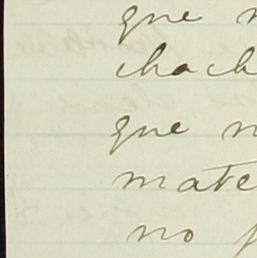 que n
chach
que n
mate
no p